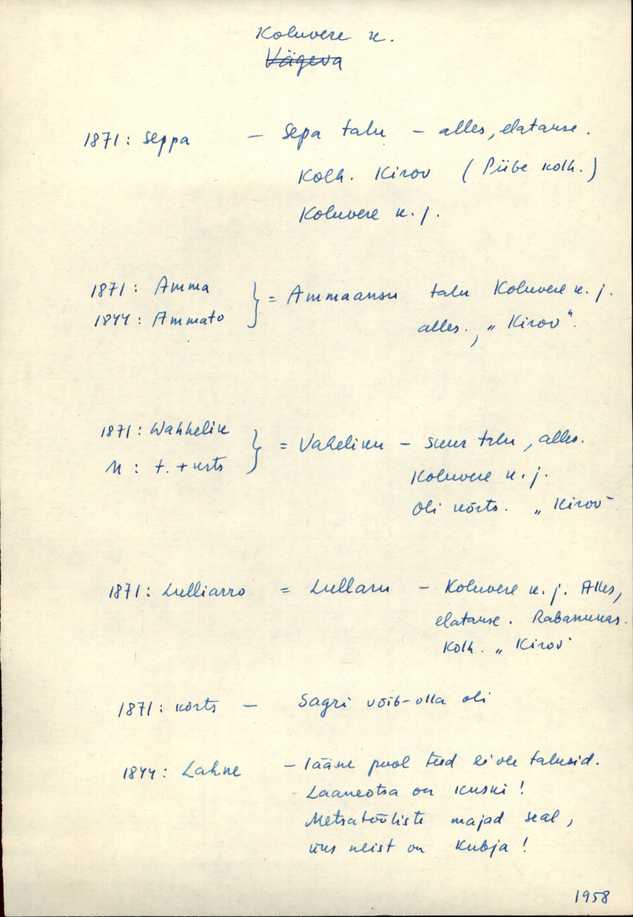 Koluvere k.
Vägeva
1871: Seppa – Sepa talu – alles, elatakse.
Kolh. Kirov (Piibe kolh.)
Koluvere k. j.
1871: Amma } = Ammaansu talu Koluvere k. j.
1844: Ammato alles., „Kirov“.
1871: Wahhelik } = Vaheliku – suur talu, alles.
M: t. + krts Koluvere k. j.
Oli kõrts. „Kirov“
1871: Lulliarro = Lullaru – Koluvere k. j. Alles,
elatakse. Rabanukas.
Kolh. „Kirov“
1871: kõrts – Sagri võib-olla oli
1844: Lahne – lääne pool teed ei ole talusid.
- Laaneotsa on kuski!
Metsatööliste majad seal,
üks neist on Kubja!
1958